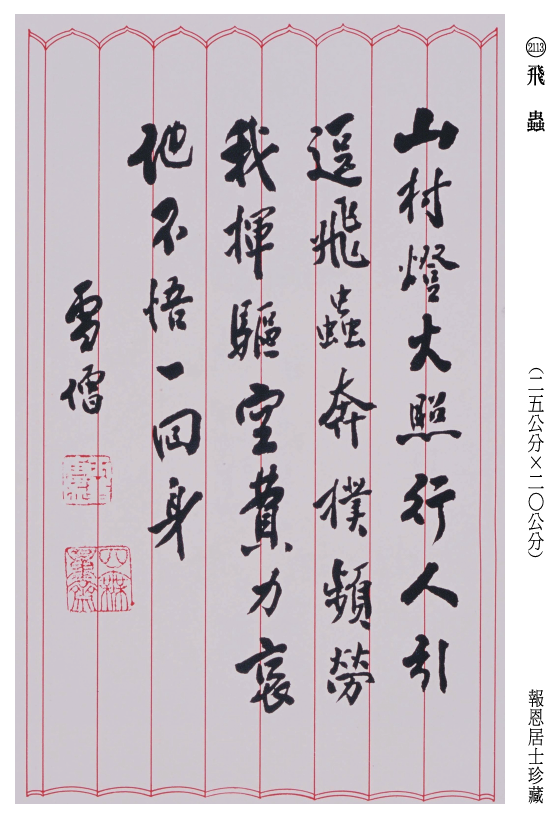 ㉑⑬ 飛蟲
(二五公分×二〇公分)
報恩居士珍藏
山村燈火照行人引
逗飛蟲奔撲頻勞
我揮驅空費力哀
他不悟一囘身
雪僧